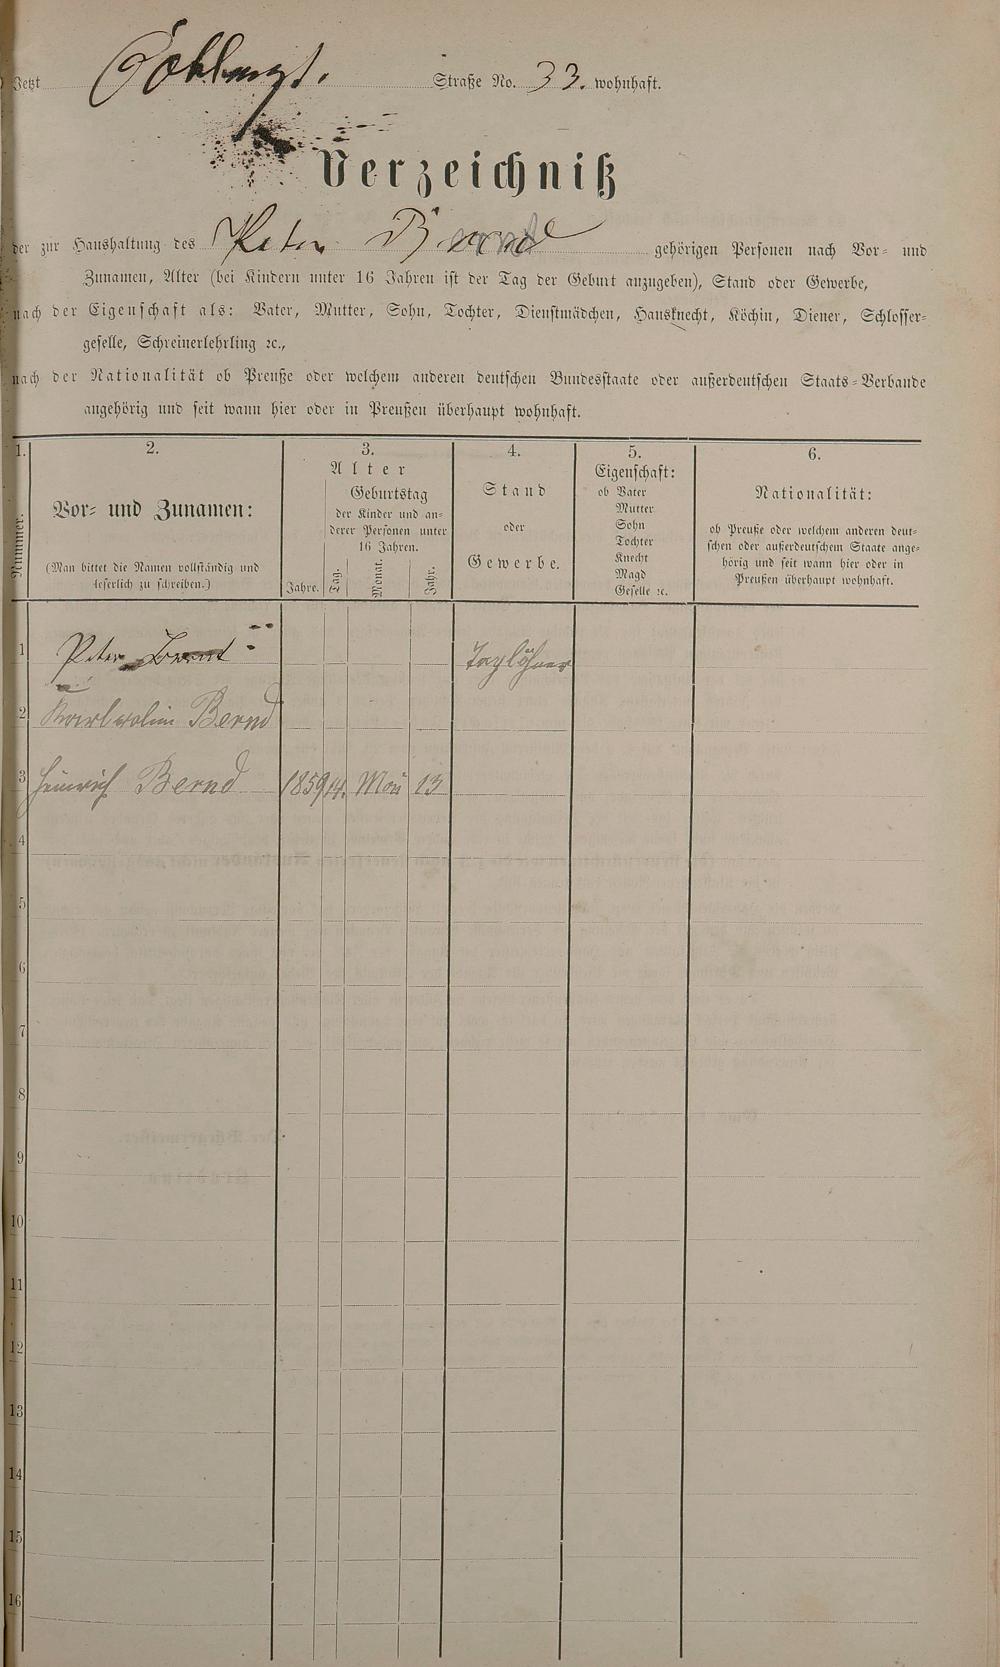 Jetzt Straße No. 33. wohnhaft.
Verzeichniß
der zur Haushaltung des Peter Bernd gehörigen Personen nach Vor- und
Zunamen, Alter (bei Kindern unter 16 Jahren ist der Tag der Geburt anzugeben), Stand oder Gewerbe,
nach der Eigenschaft als: Vater, Mutter, Sohn, Tochter, Dienstmädchen, Hausknecht, Köchin, Diener, Schlosser-
geselle, Schreinerlehrling ꝛc.,
nach der Nationalität ob Preuße oder welchem anderen deutschen Bundesstaate oder außerdeutschen Staats-Verbande
angehörig und seit wann hier oder in Preußen überhaupt wohnhaft.
1.
Nummer.
2.
Vor- und Zunamen:
(Man bittet die Namen vollständig und
leserlich zu schreiben.)
3.
Alter
Geburtstag
der Kinder und an-
derer Personen unter
16 Jahren.
Jahre. Tag. Monat. Jahr.
4.
Stand
oder
Gewerbe.
5.
Eigenschaft:
ob Vater
Mutter
Sohn
Tochter
Knecht
Magd
Geselle ꝛc.
6.
Nationalität:
ob Preuße oder welchem anderen deut-
schen oder außerdeutschem Staate ange-
hörig und seit wann hier oder in
Preußen überhaupt wohnhaft.
1 Peter Bernt Taglöhner
2 Bernd
3 Heinrich Bernd 1859 14. Mai 13
4
5
6
7
8
9
10
11
12
13
14
15
16